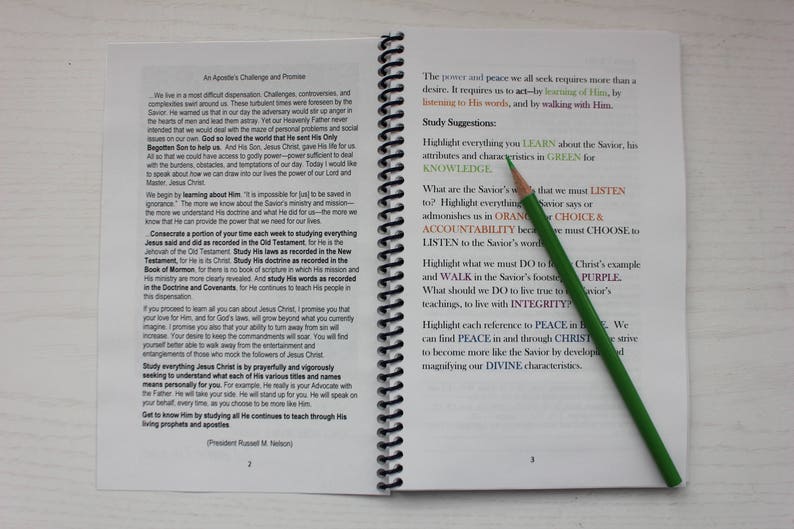 An Apostle's Challenge and Promise
...We live in a most difficult dispensation. Challenges, controversies, and
complexities swirl around us. These turbulent times were foreseen by the
Savior. He warned us that in our day the adversary would stir up anger in
the hearts of men and lead them astray. Yet our Heavenly Father never
intended that we would deal with the maze of personal problems and social
issues on our own. God so loved the world that He sent His Only
Begotten Son to help us. And His Son, Jesus Christ, gave His life for us.
All so that we could have access to godly power—power sufficient to deal
with the burdens, obstacles, and temptations of our day. Today I would like
to speak about how we can draw into our lives the power of our Lord and
Master, Jesus Christ.
We begin by learning about Him. "It is impossible for [us] to be saved in
ignorance." The more we know about the Savior's ministry and mission—
the more we understand His doctrine and what He did for us—the more we
know that He can provide the power that we need for our lives.
...Consecrate a portion of your time each week to studying everything
Jesus said and did as recorded in the Old Testament, for He is the
Jehovah of the Old Testament. Study His laws as recorded in the New
Testament, for He is its Christ. Study His doctrine as recorded in the
Book of Mormon, for there is no book of scripture in which His mission and
His ministry are more clearly revealed. And study His words as recorded
in the Doctrine and Covenants, for He continues to teach His people in
this dispensation.
If you proceed to learn all you can about Jesus Christ, I promise you that
your love for Him, and for God's laws, will grow beyond what you currently
imagine. I promise you also that your ability to turn away from sin will
increase. Your desire to keep the commandments will soar. You will find
yourself better able to walk away from the entertainment and
entanglements of those who mock the followers of Jesus Christ.
Study everything Jesus Christ is by prayerfully and vigorously
seeking to understand what each of His various titles and names
means personally for you. For example, He really is your Advocate with
the Father. He will take your side. He will stand up for you. He will speak on
your behalf, every time, as you choose to be more like Him.
Get to know Him by studying all He continues to teach through His
living prophets and apostles.
(President Russell M. Nelson)
2
The power and peace we all seek requires more than a
desire. It requires us to act—by learning of Him, by
listening to His words, and by walking with Him.
Study Suggestions:
Highlight everything you LEARN about the Savior, his
attributes and characteristics in GREEN for
KNOWLEDGE.
What are the Savior's that we must LISTEN
to? Highlight everything Savior says or
admonishes us in or CHOICE &
ACCOUNTABILITY we must CHOOSE to
LISTEN to the Savior's words
Highlight what we must DO to Christ's example
and WALK in the Savior's PURPLE.
What should we DO to live true to Savior's
teachings, to live with INTEGRITY?
Highlight each reference to PEACE in We
can find PEACE in and through CHRIST strive
to become more like the Savior by and
magnifying our DIVINE characteristics.
3